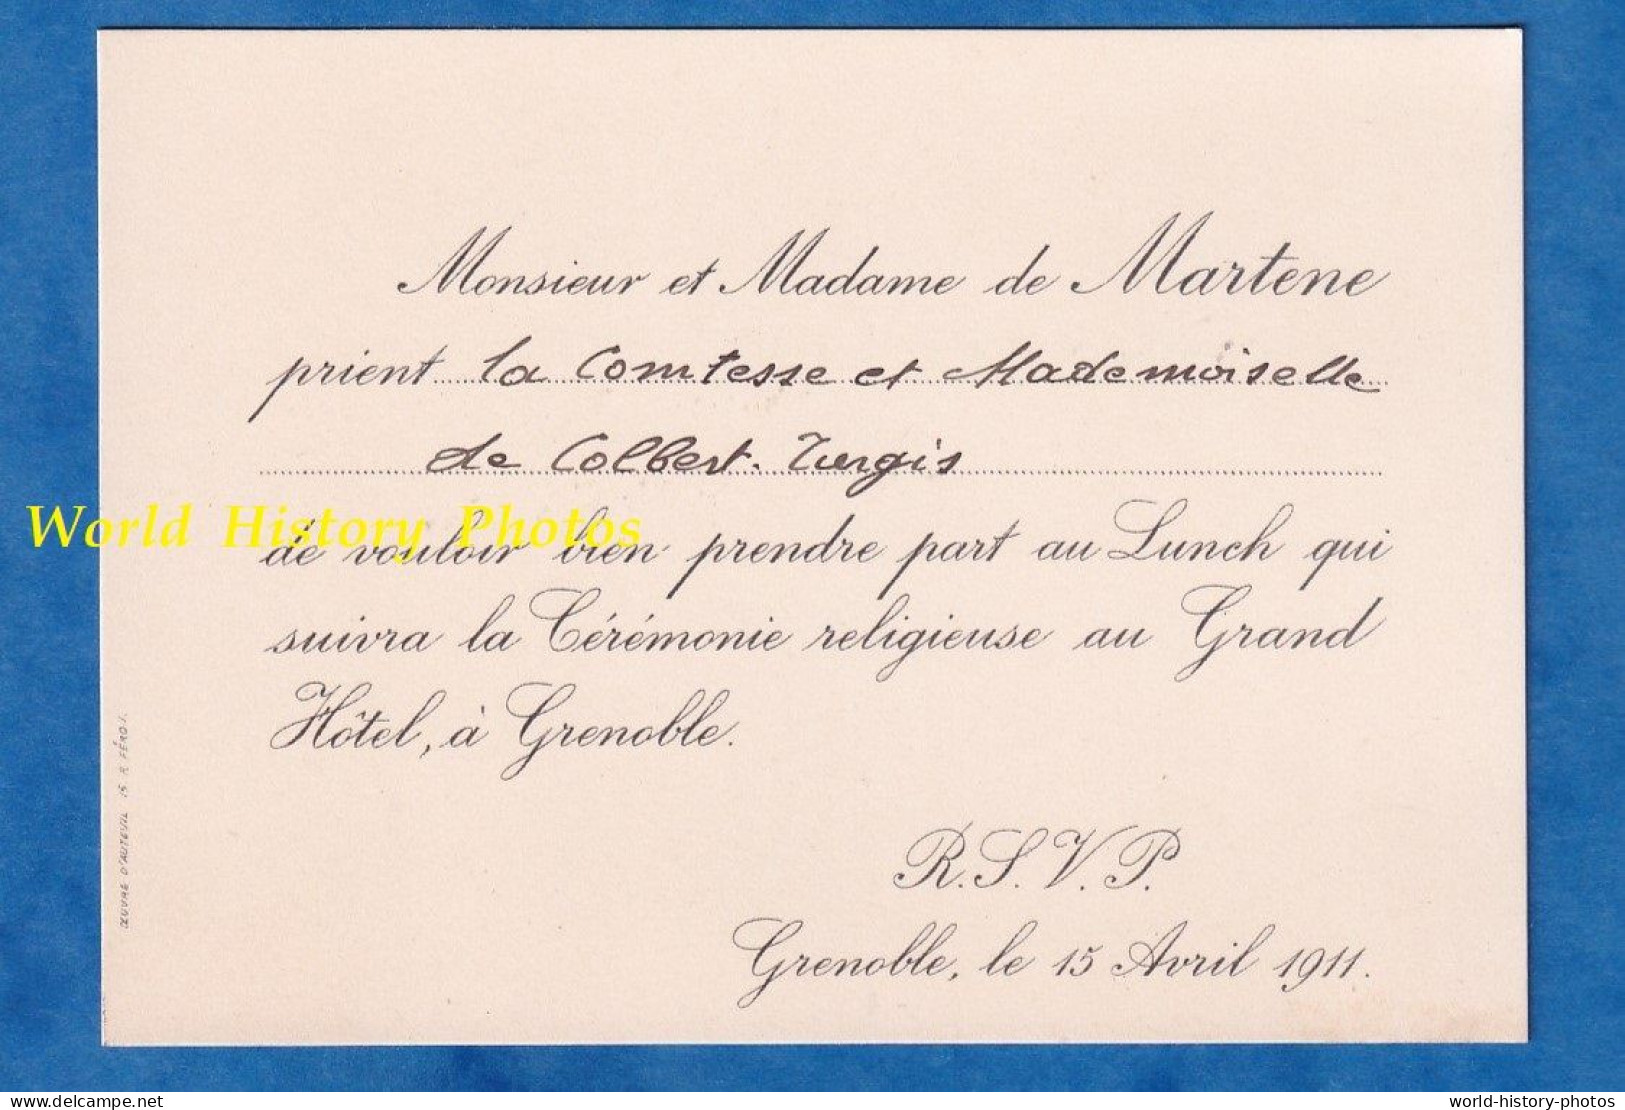 Monsieur et Madame de Martene
prient la Comtesse et Mademoiselle
de Colbert-Turgis
World History Photos
de vouloir bien prendre part au Lunch qui
suivra la Cérémonie religieuse au Grand
Hôtel, à Grenoble.
R.S.V.P.
Grenoble, le 15 Avril 1911.
ŒUVRE D'AUTEUIL 15. R. FÉROU.
delcampe.net
world-history-photos